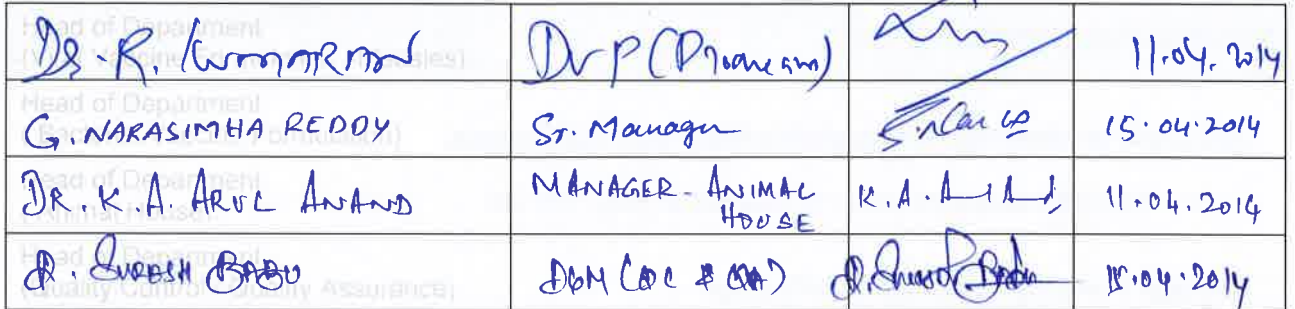 Head of Department
Dr. R. Kumaran DVP (Program) 11.04.2014
Head of Department
G. NARASIMHA REDDY Sr. Manager 15.04.2014
Head of Department
(Animal House)
DR. K. A. ARUL ANAND MANAGER - ANIMAL HOUSE K. A. Anand 11.04.2014
Head of Department
(Quality Control Quality Assurance)
D. SURESH BABU DGM (QC & QA) D. Suresh Babu 15.04.2014